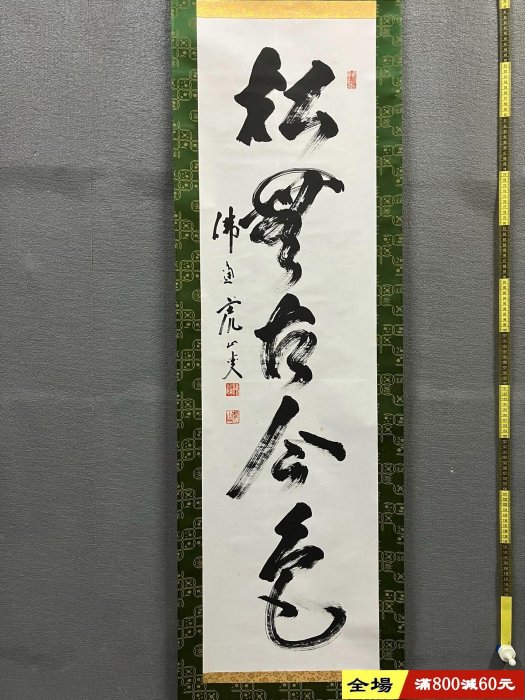 松無古今色
佛通虎山叟
全場 滿800減60元